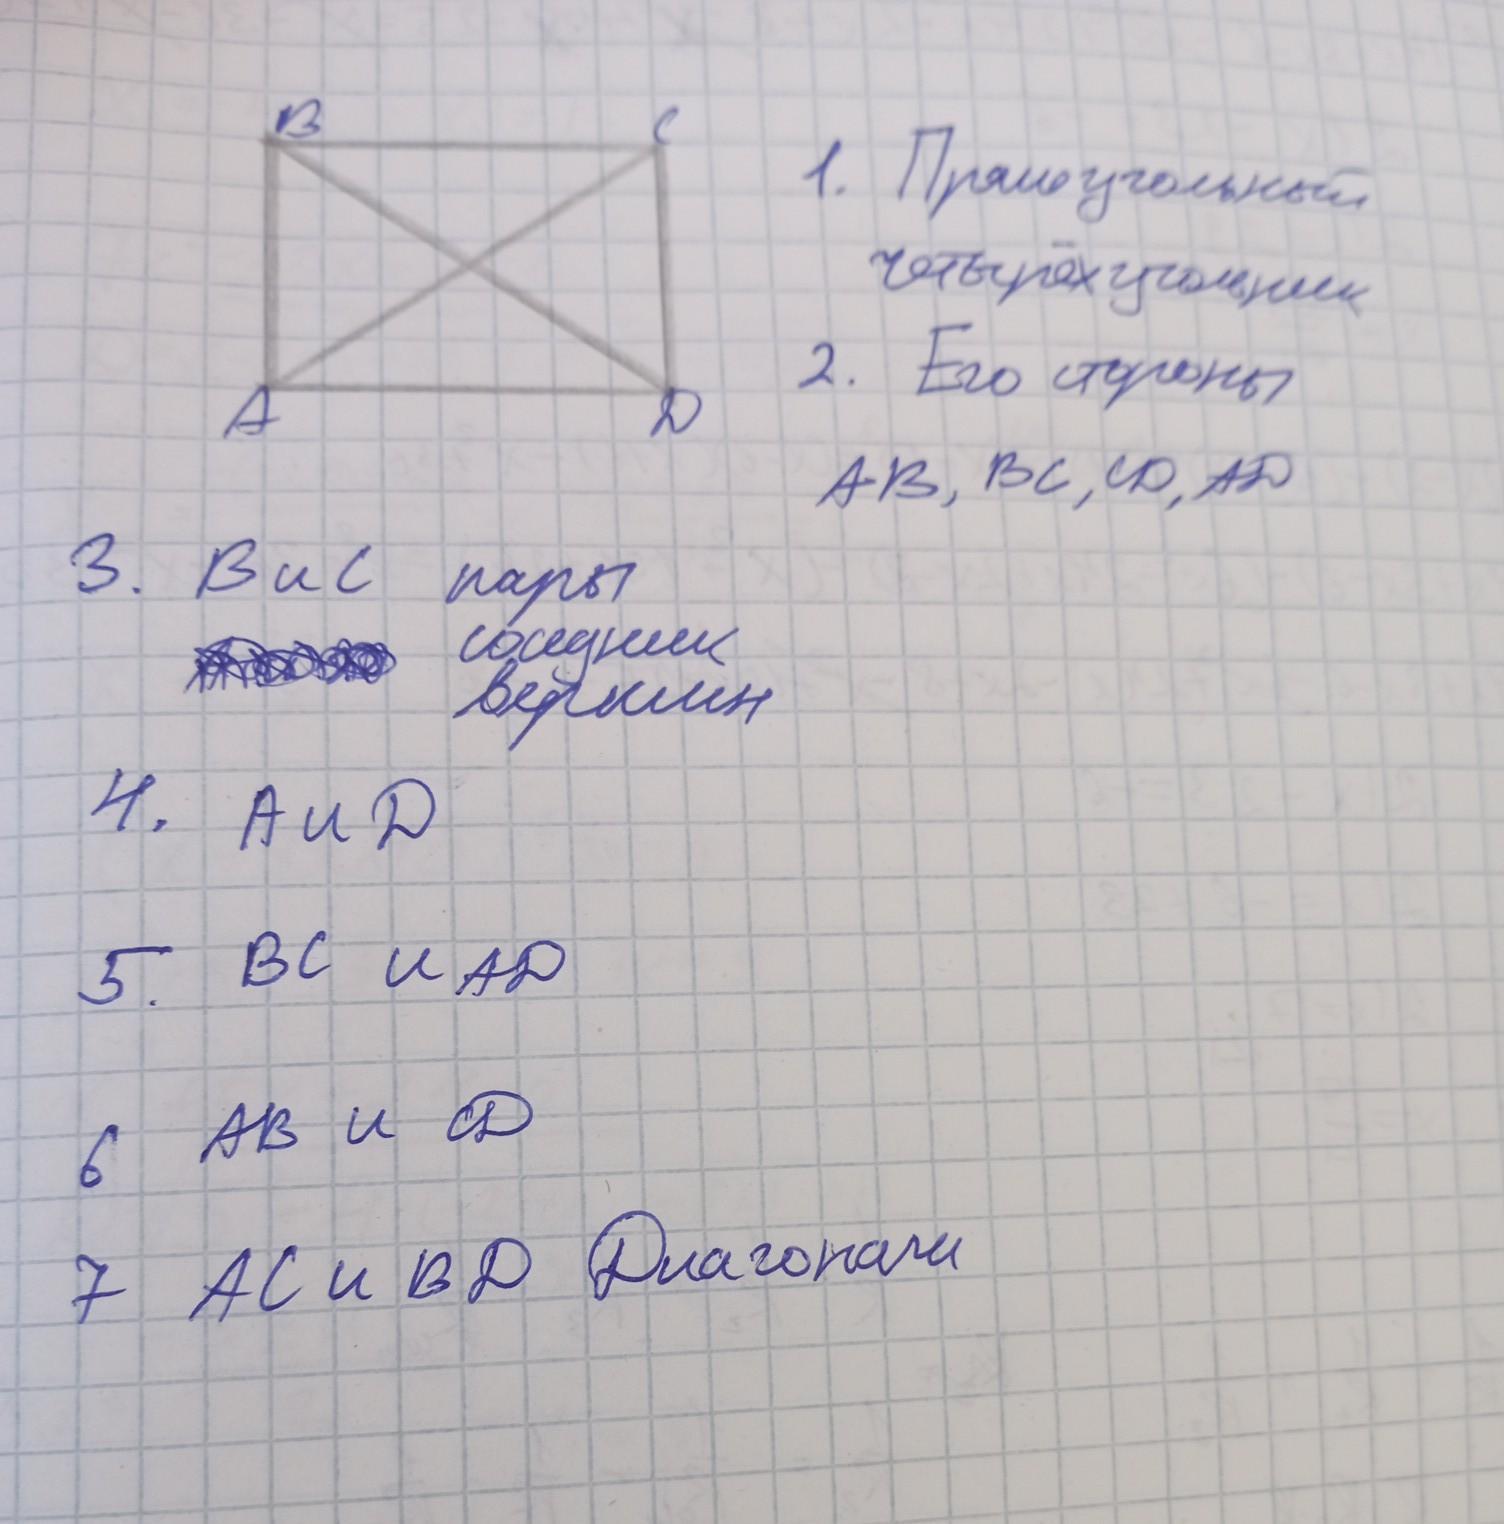 B C
A D
1. Прямоугольный
четырёхугольник
2. Его стороны
AB, BC, CD, AD
3. B и C пары
соседних
вершин
4. A и D
5. BC и AD
6 AB и CD
7 AC и BD Диагонали